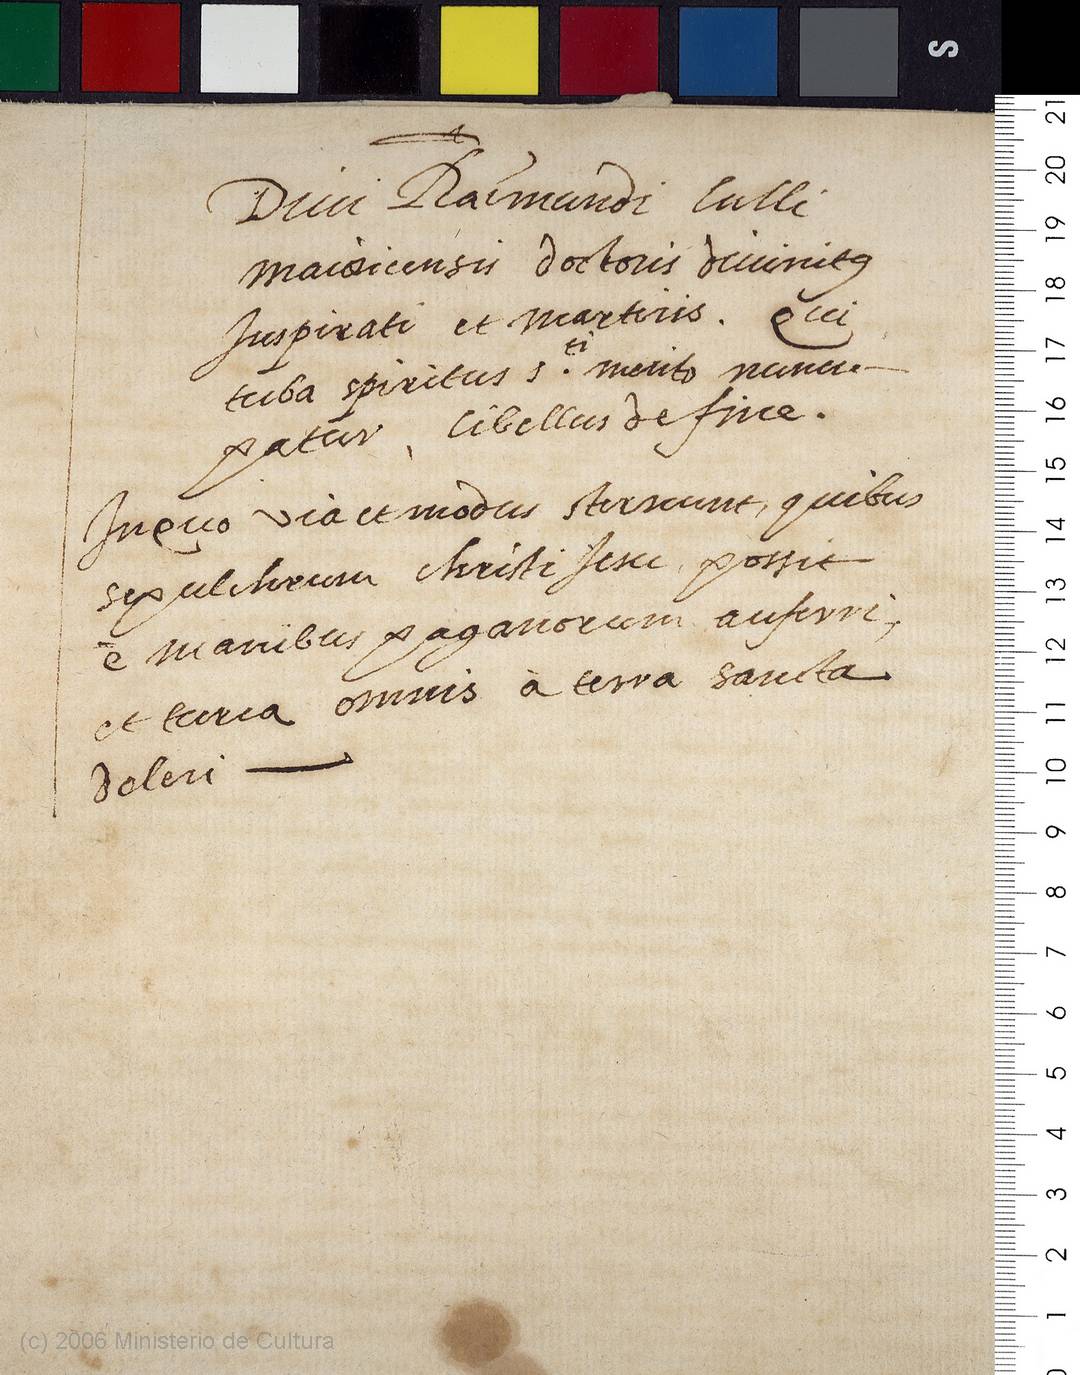 Diui Raimundi lulli
maioricensis doctoris diuinitꝯ
Inspirati et martiris. Qui
tuba spiritus s.ti merito nuncu-
patur, libellus de fine.
In quo via et modus sternunt, quibus
sepulchrum christi Jesu possit
è manibus paganorum auferri,
et turca omnis à terra sancta
deleri —
S
21
20
19
18
17
16
15
14
13
12
11
10
9
8
7
6
5
4
3
2
1
0
(c) 2006 Ministerio de Cultura